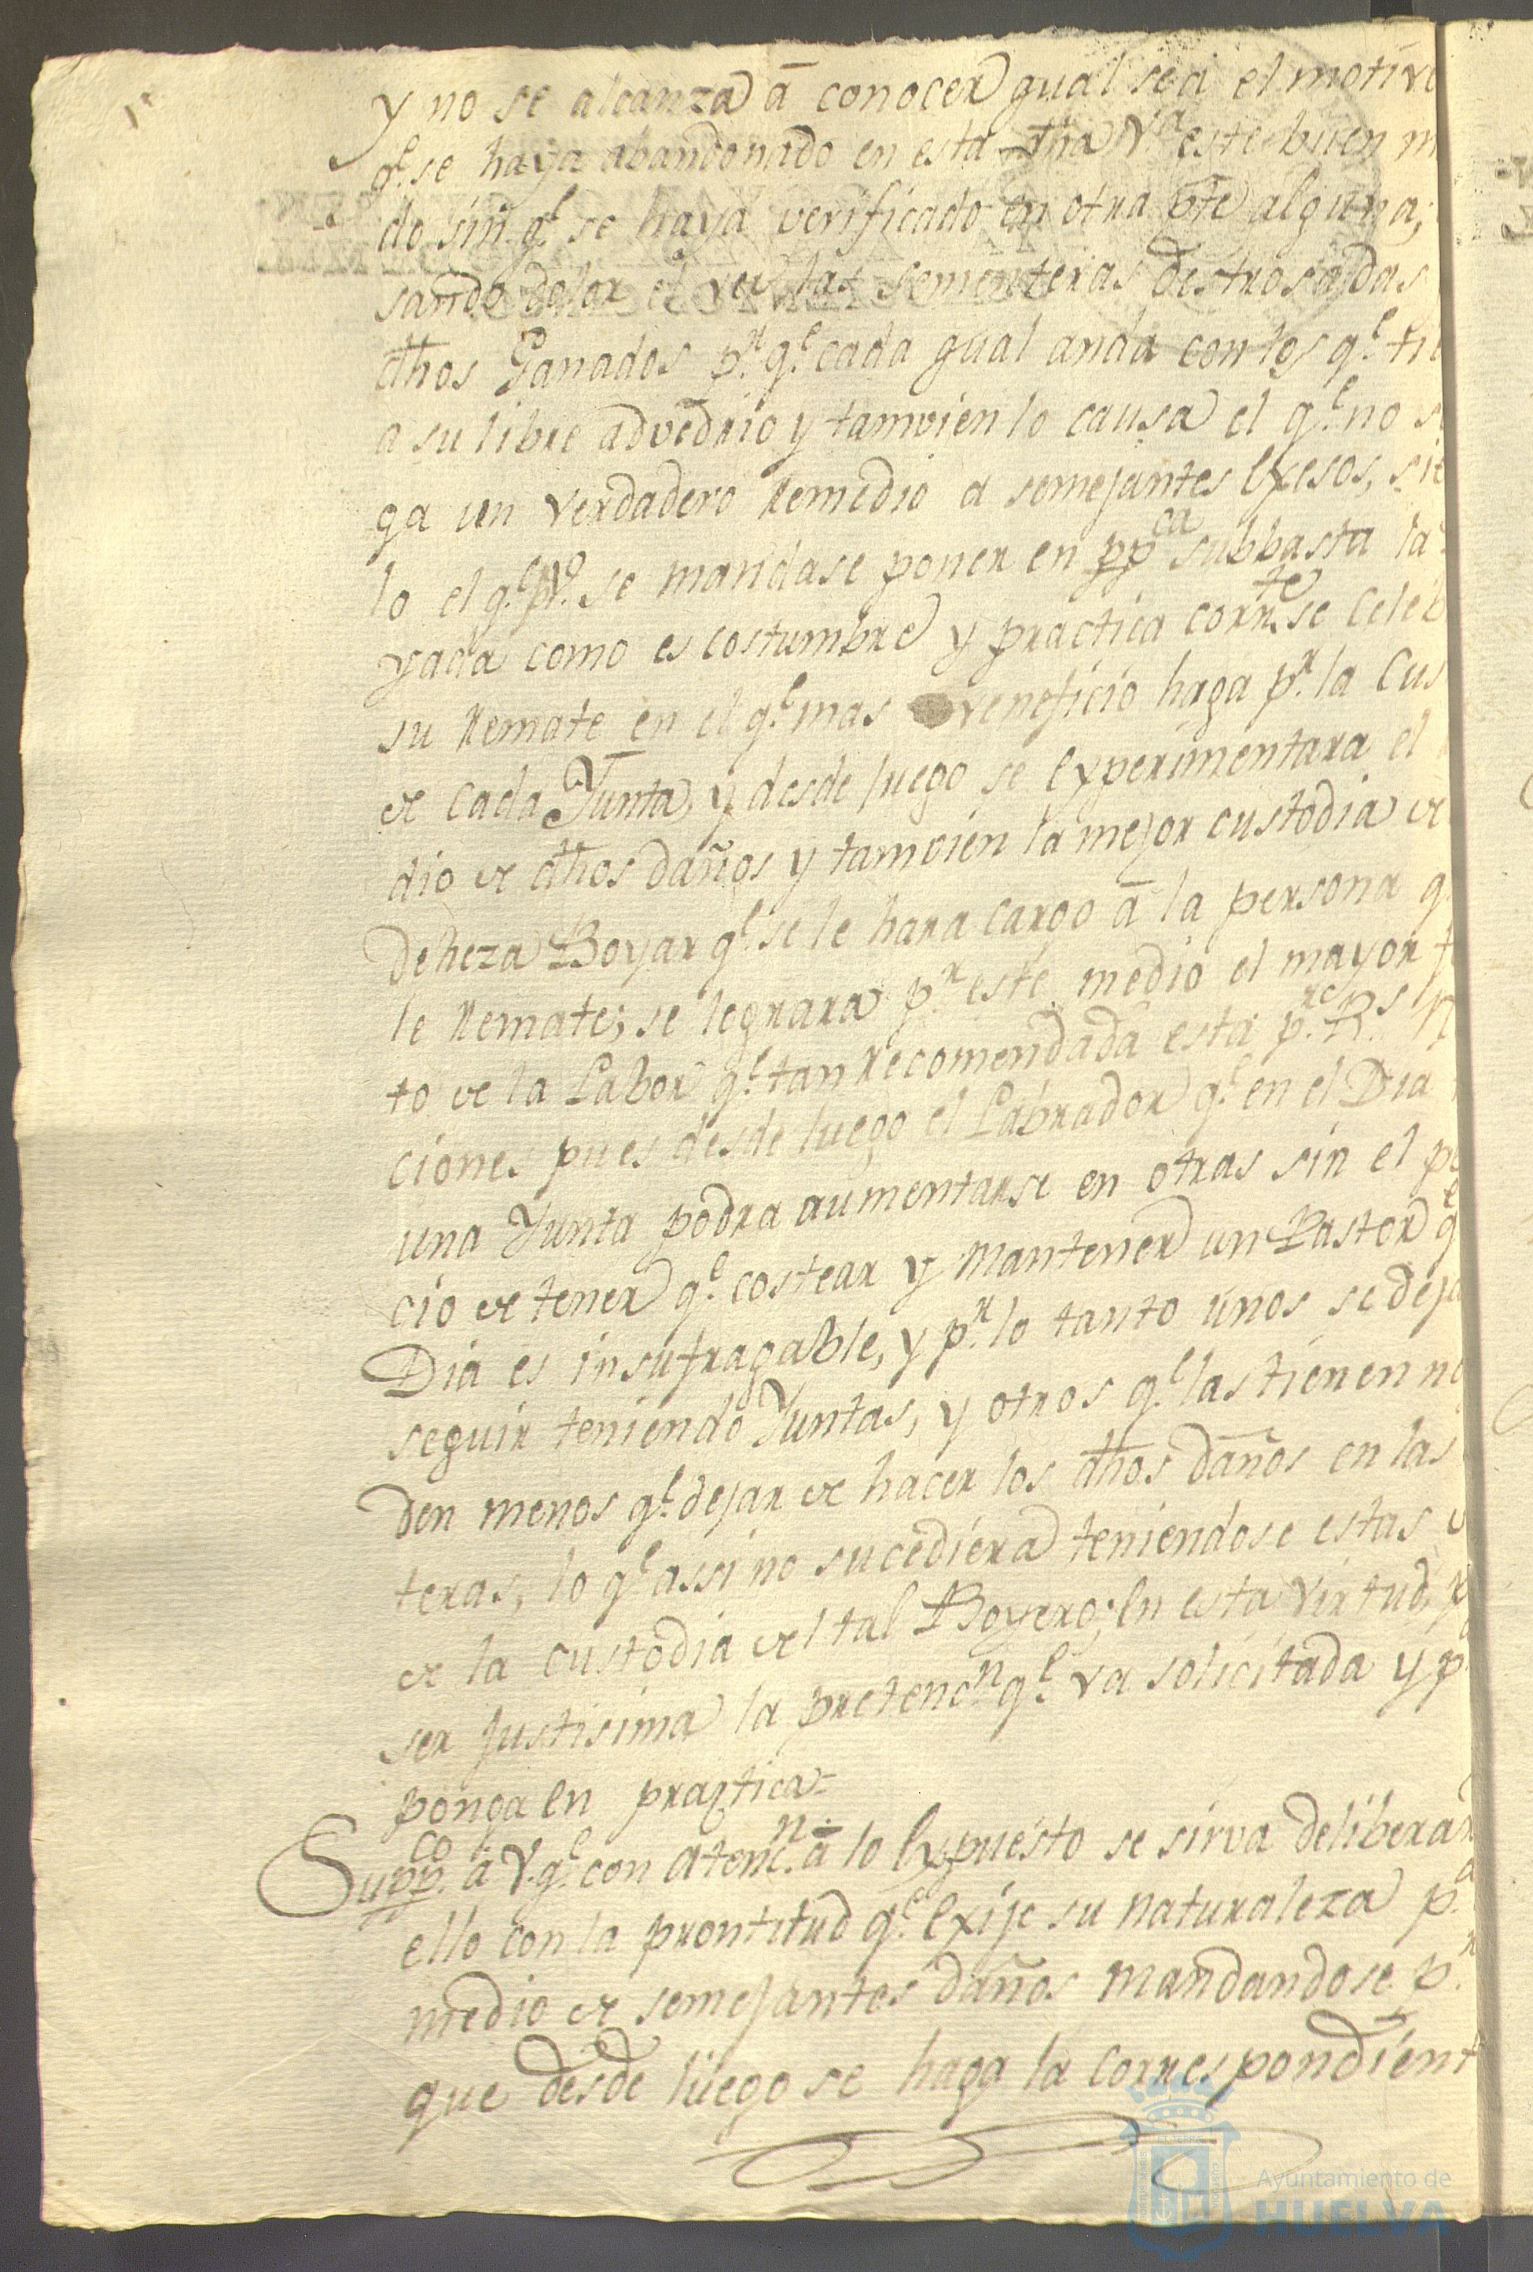 y no se alcanza â conocer qual sea el motivo
q.e se haya abandonado en esta dha V.a este buen m
do sin q.e se haya verificado en otra pte alguna;
sando dolor el ver las sementeras destrosadas
dhos Ganados p.r q.e cada qual anda con los q.e tie
a su libre advedrio y tamvien lo causa el q.e no s
ga un verdadero remedio a semejantes Exesos, sie
lo el q.e se mandase poner en ppca subbasta la
yada como es costumbre y practica corrte se Celeb
su Remate en el q.e mas veneficio haga p.r la Cus
de cada Yunta, y desde luego se Experimentara el
dio de dhos daños y tamvien la mejor custodia de
Deheza Boyar q.e se le hara cargo â la persona q
le Remate; se lograra p.r este medio el mayor f
to de la Labor q.e tan recomendada esta p.r Rs
ciones pues desde luego el Labrador q.e en el Dia
una Yunta podra aumentarse en otras sin el pe
cio de tener q.e costear y mantener un Pastor q.e
Dia es insufragable, y p.r lo tanto unos se deja
seguir teniendo Yuntas, y otros q.e las tienen no
den menos q.e dejar de hacer los dhos daños en las
teras, lo q.e assi no sucediera teniendose estas
de la custodia del tal Boyero; En esta virtud, p
ser justisima la pretenc.n q.e va solicitada y p
ponga en practica=
Suppco. â V. q.e con atenc.n â lo Expuesto se sirva deliberar
ello con la prontitud q.e Exije su naturaleza p.a
medio de semejantes daños mandandose p.r
que desde luego se haga la correspondient
Ayuntamiento de
HUELVA